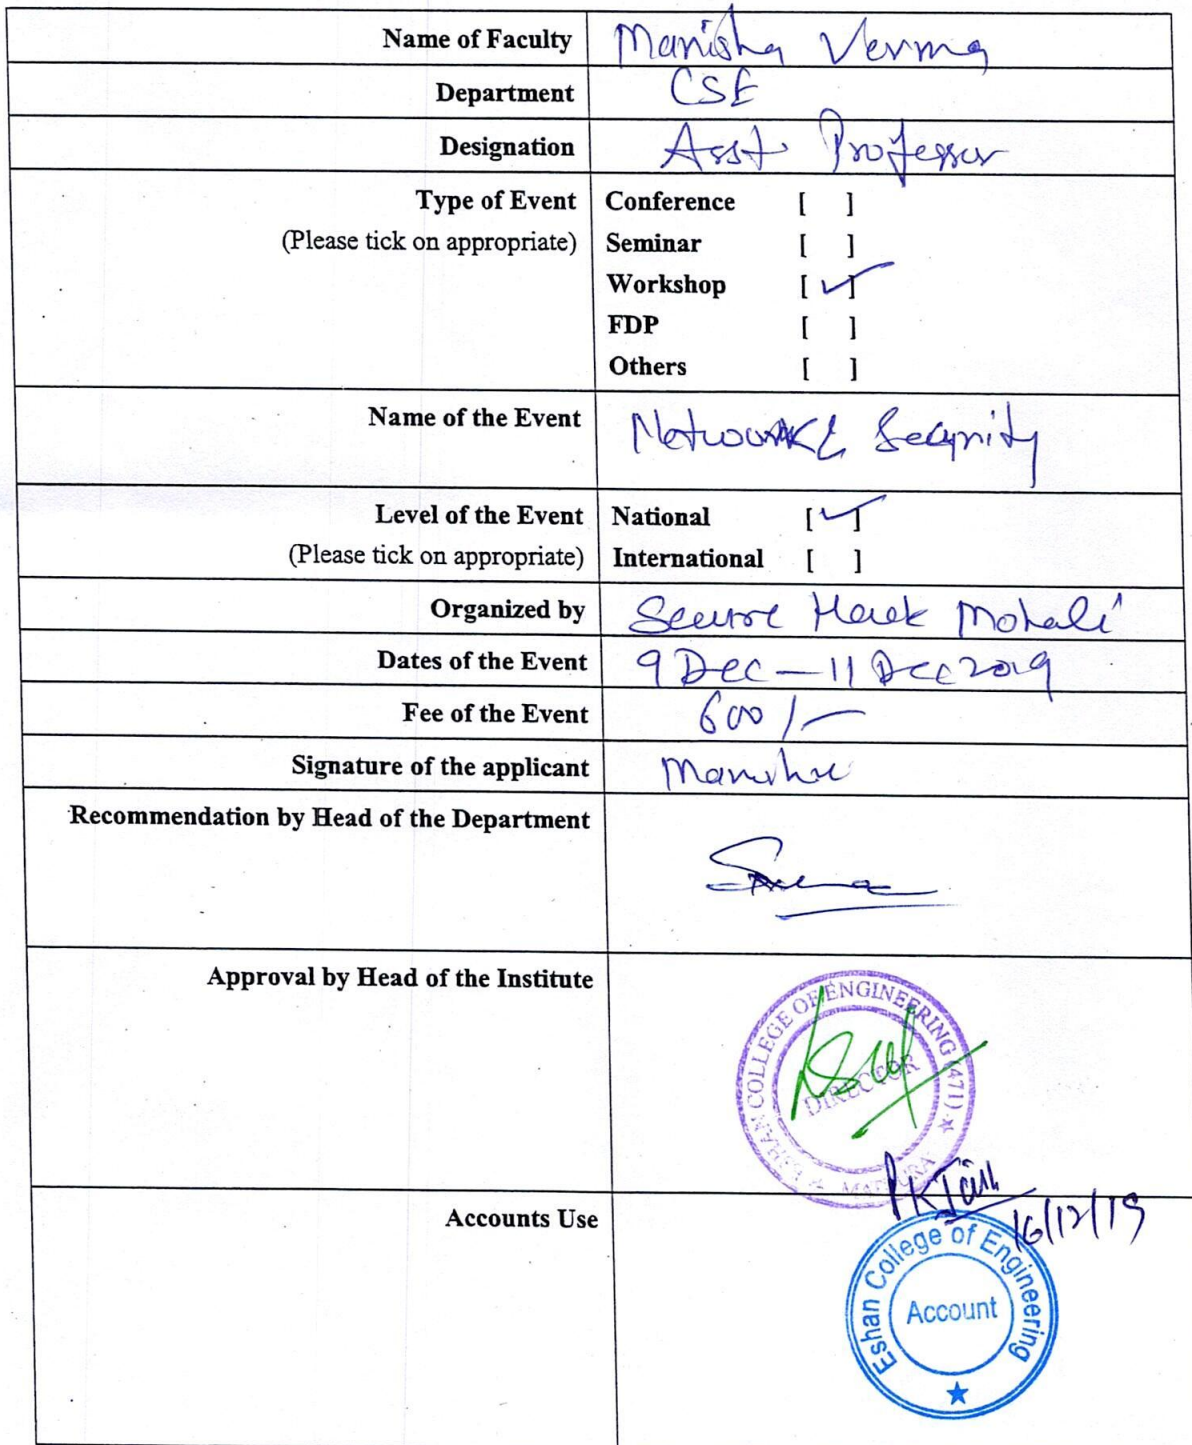 Name of Faculty Manisha Verma
Department CSE
Designation Asst Professor
Type of Event Conference [ ]
(Please tick on appropriate) Seminar [ ]
Workshop [✓]
FDP [ ]
Others [ ]
Name of the Event Network & Security
Level of the Event National [✓]
(Please tick on appropriate) International [ ]
Organized by Secure Hack Mohali
Dates of the Event 9 Dec — 11 Dec 2019
Fee of the Event 600/-
Signature of the applicant Manisha
Recommendation by Head of the Department
Approval by Head of the Institute
ESHAN COLLEGE OF ENGINEERING (471) ★ MATHURA ★
DIRECTOR
PKJain
16/12/19
Accounts Use
Eshan College of Engineering
Account
★